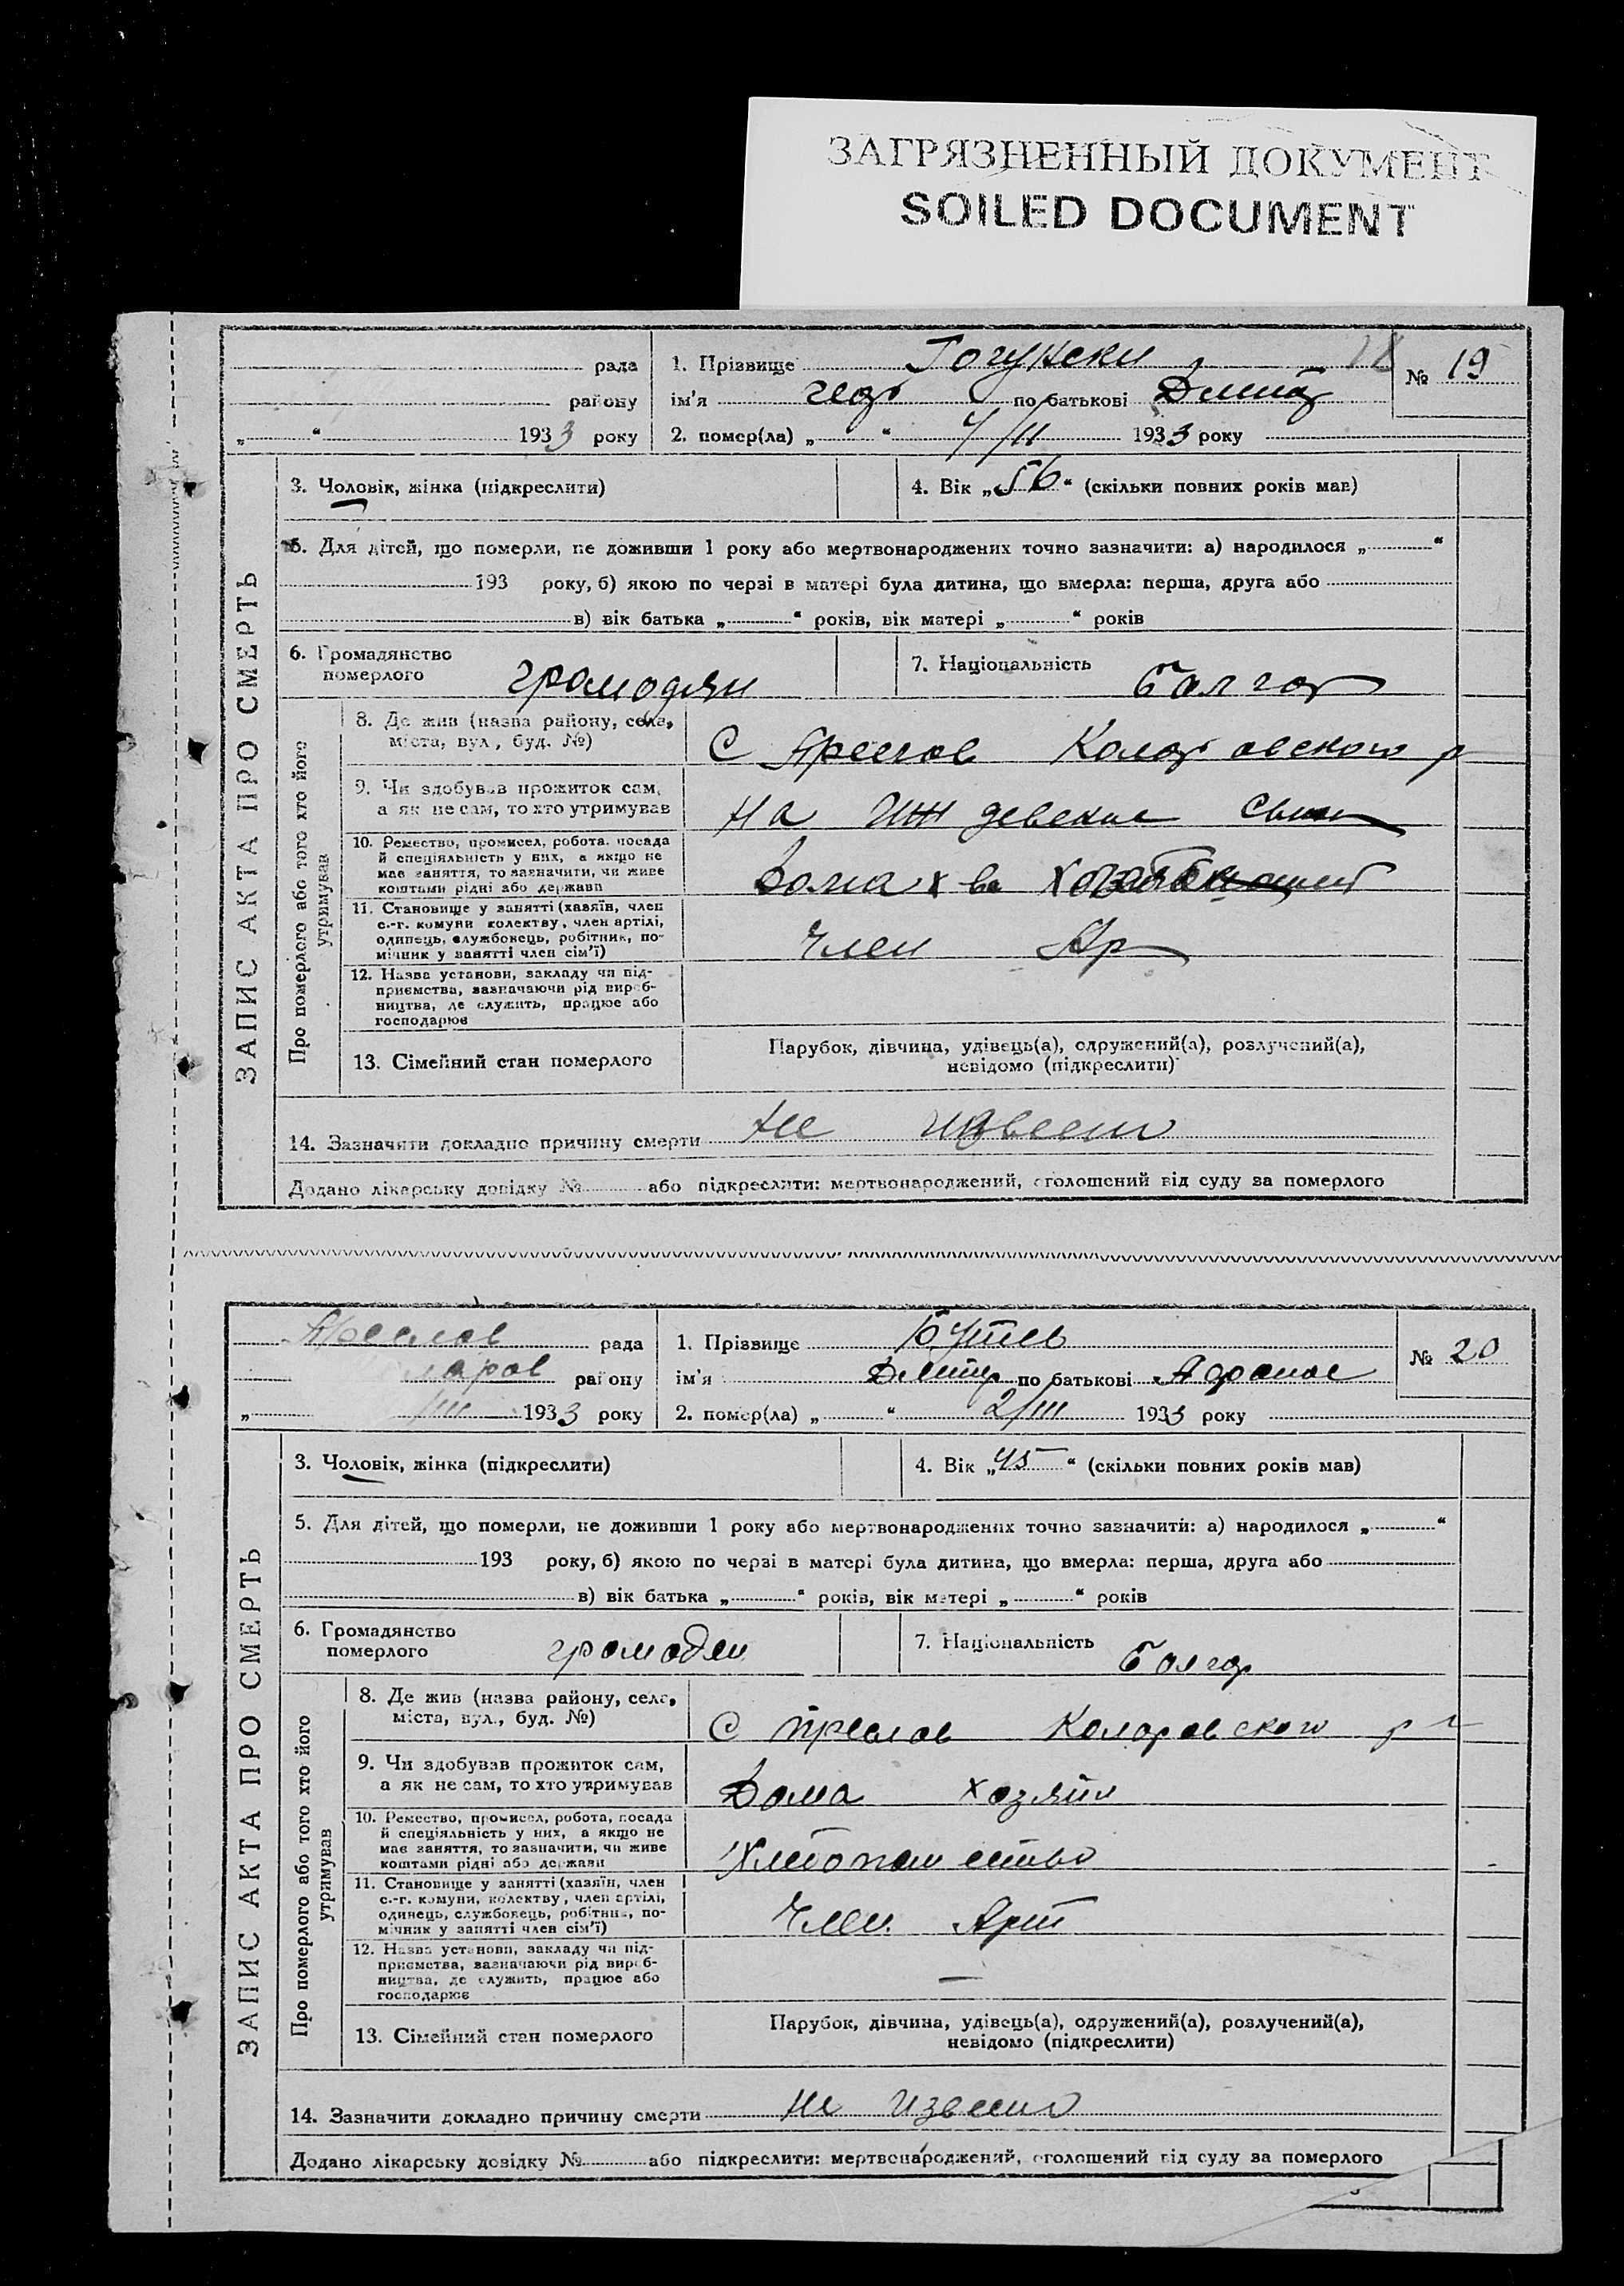 ЗАГРЯЗНЕННЫЙ ДОКУМЕНТ
SOILED DOCUMENT
рада
району
„ “ 1933 року
1. Прізвище
№ 19
ім'я по батькові
2. помер(ла) „ “ 1933 року
ЗАПИС АКТА ПРО СМЕРТЬ
3. Чоловік, жінка (підкреслити)
4. Вік „56“ (скільки повних років мав)
5. Для дітей, що померли, не доживши 1 року або мертвонароджених точно зазначити: а) народилося „ “
193 року, б) якою по черзі в матері була дитина, що вмерла: перша, друга або
в) вік батька „ “ років, вік матері „ “ років
6. Громадянство
померлого громодян
7. Національність Болгар
Про померлого або того хто його
утримував
8. Де жив (назва району, села,
міста, вул., буд. №)
С
9. Чи здобував прожиток сам,
а як не сам, то хто утримував
На
10. Ремество, промисел, робота, посада
й спеціяльність у них, а якщо не
має заняття, то зазначити, чи живе
коштами рідні або держави
11. Становище у занятті (хазяїн, член
с.-г. комуни колективу, член артілі,
одинець, службовець, робітник, по-
мічник у занятті член сім'ї)
Член Ар
12. Назва установи, закладу чи під-
приємства, зазначаючи рід вироб-
ництва, де служить, працює або
господарює
13. Сімейний стан померлого
Парубок, дівчина, удівець(а), одружений(а), розлучений(а),
невідомо (підкреслити)
14. Зазначити докладно причину смерти Не извесно
Додано лікарську довідку № або підкреслити: мертвонароджений, оголошений від суду за померлого
Преслав рада
району
„ /III 1933 року
1. Прізвище Бутев
№ 20
ім'я Дмитр по батькові
2. помер(ла) „ “ 2/III 1933 року
ЗАПИС АКТА ПРО СМЕРТЬ
3. Чоловік, жінка (підкреслити)
4. Вік „45“ (скільки повних років мав)
5. Для дітей, що померли, не доживши 1 року або мертвонароджених точно зазначити: а) народилося „ “
193 року, б) якою по черзі в матері була дитина, що вмерла: перша, друга або
в) вік батька „ “ років, вік матері „ “ років
6. Громадянство
померлого громодян
7. Національність Болгар
Про померлого або того хто його
утримував
8. Де жив (назва району, села,
міста, вул., буд. №)
С Преслав Коларовского р
9. Чи здобував прожиток сам,
а як не сам, то хто утримував
Дома хозяйн
10. Ремество, промисел, робота, посада
й спеціяльність у них, а якщо не
має заняття, то зазначити, чи живе
коштами рідні або держави
11. Становище у занятті (хазяїн, член
с.-г. комуни, колективу, член артілі,
одинець, службовець, робітник, по-
мічник у занятті член сім'ї)
Член Арт
12. Назва установи, закладу чи під-
приємства, зазначаючи рід вироб-
ництва, де служить, працює або
господарює
—
13. Сімейний стан померлого
Парубок, дівчина, удівець(а), одружений(а), розлучений(а),
невідомо (підкреслити)
14. Зазначити докладно причину смерти Не извесно
Додано лікарську довідку № або підкреслити: мертвонароджений, оголошений від суду за померлого